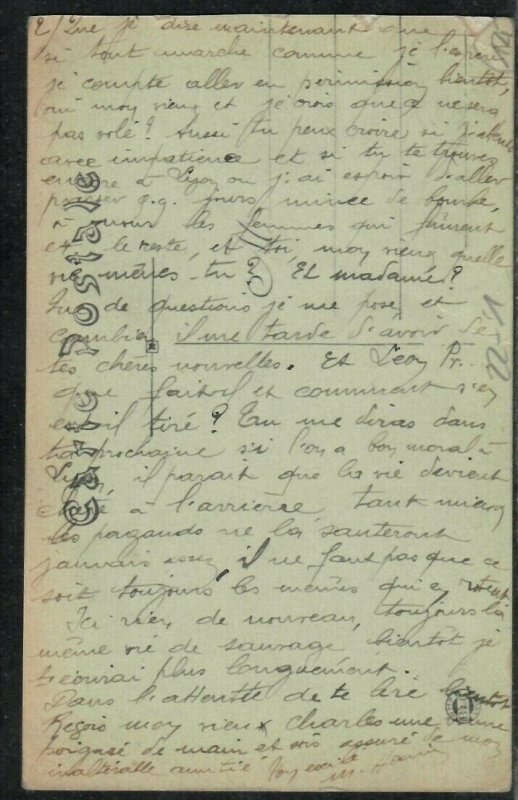 2/ Que je dire maintenant que
si tout marche comme je l'espère
je compte aller en permission bientôt,
oui mon vieux et je crois que ça ne sera
pas volé? Aussi tu peux croire si j'attends
avec impatience et si tu te trouves
encore à Lyon ou j'ai espoir d'aller
passer q.q. jours mince de bombe,
à nous les femmes qui
et le reste, et toi, mon vieux quelle
vie mènes-tu? Et madame?
Que de questions je me pose et
combien il me tarde d'avoir de
tes chères nouvelles. Et Léon Pr.
que fait-il et comment s'en
est-il tiré? Tu me diras dans
ta prochaine si l'on a bon moral à
Lyon, il parait que la vie devient
chère à l'arrière, tant mieux
les ne la sauteront
jamais assez, il ne faut pas que ce
soit toujours les mêmes qui en
Ici rien de nouveau, toujours la
même vie de sauvage bientôt je
t'écrirai plus longuement.
Dans l'attente de te lire bientôt
Reçois mon vieux Charles une
poignée de main et sois assuré de mon
inaltérable amitié
Carte Postale